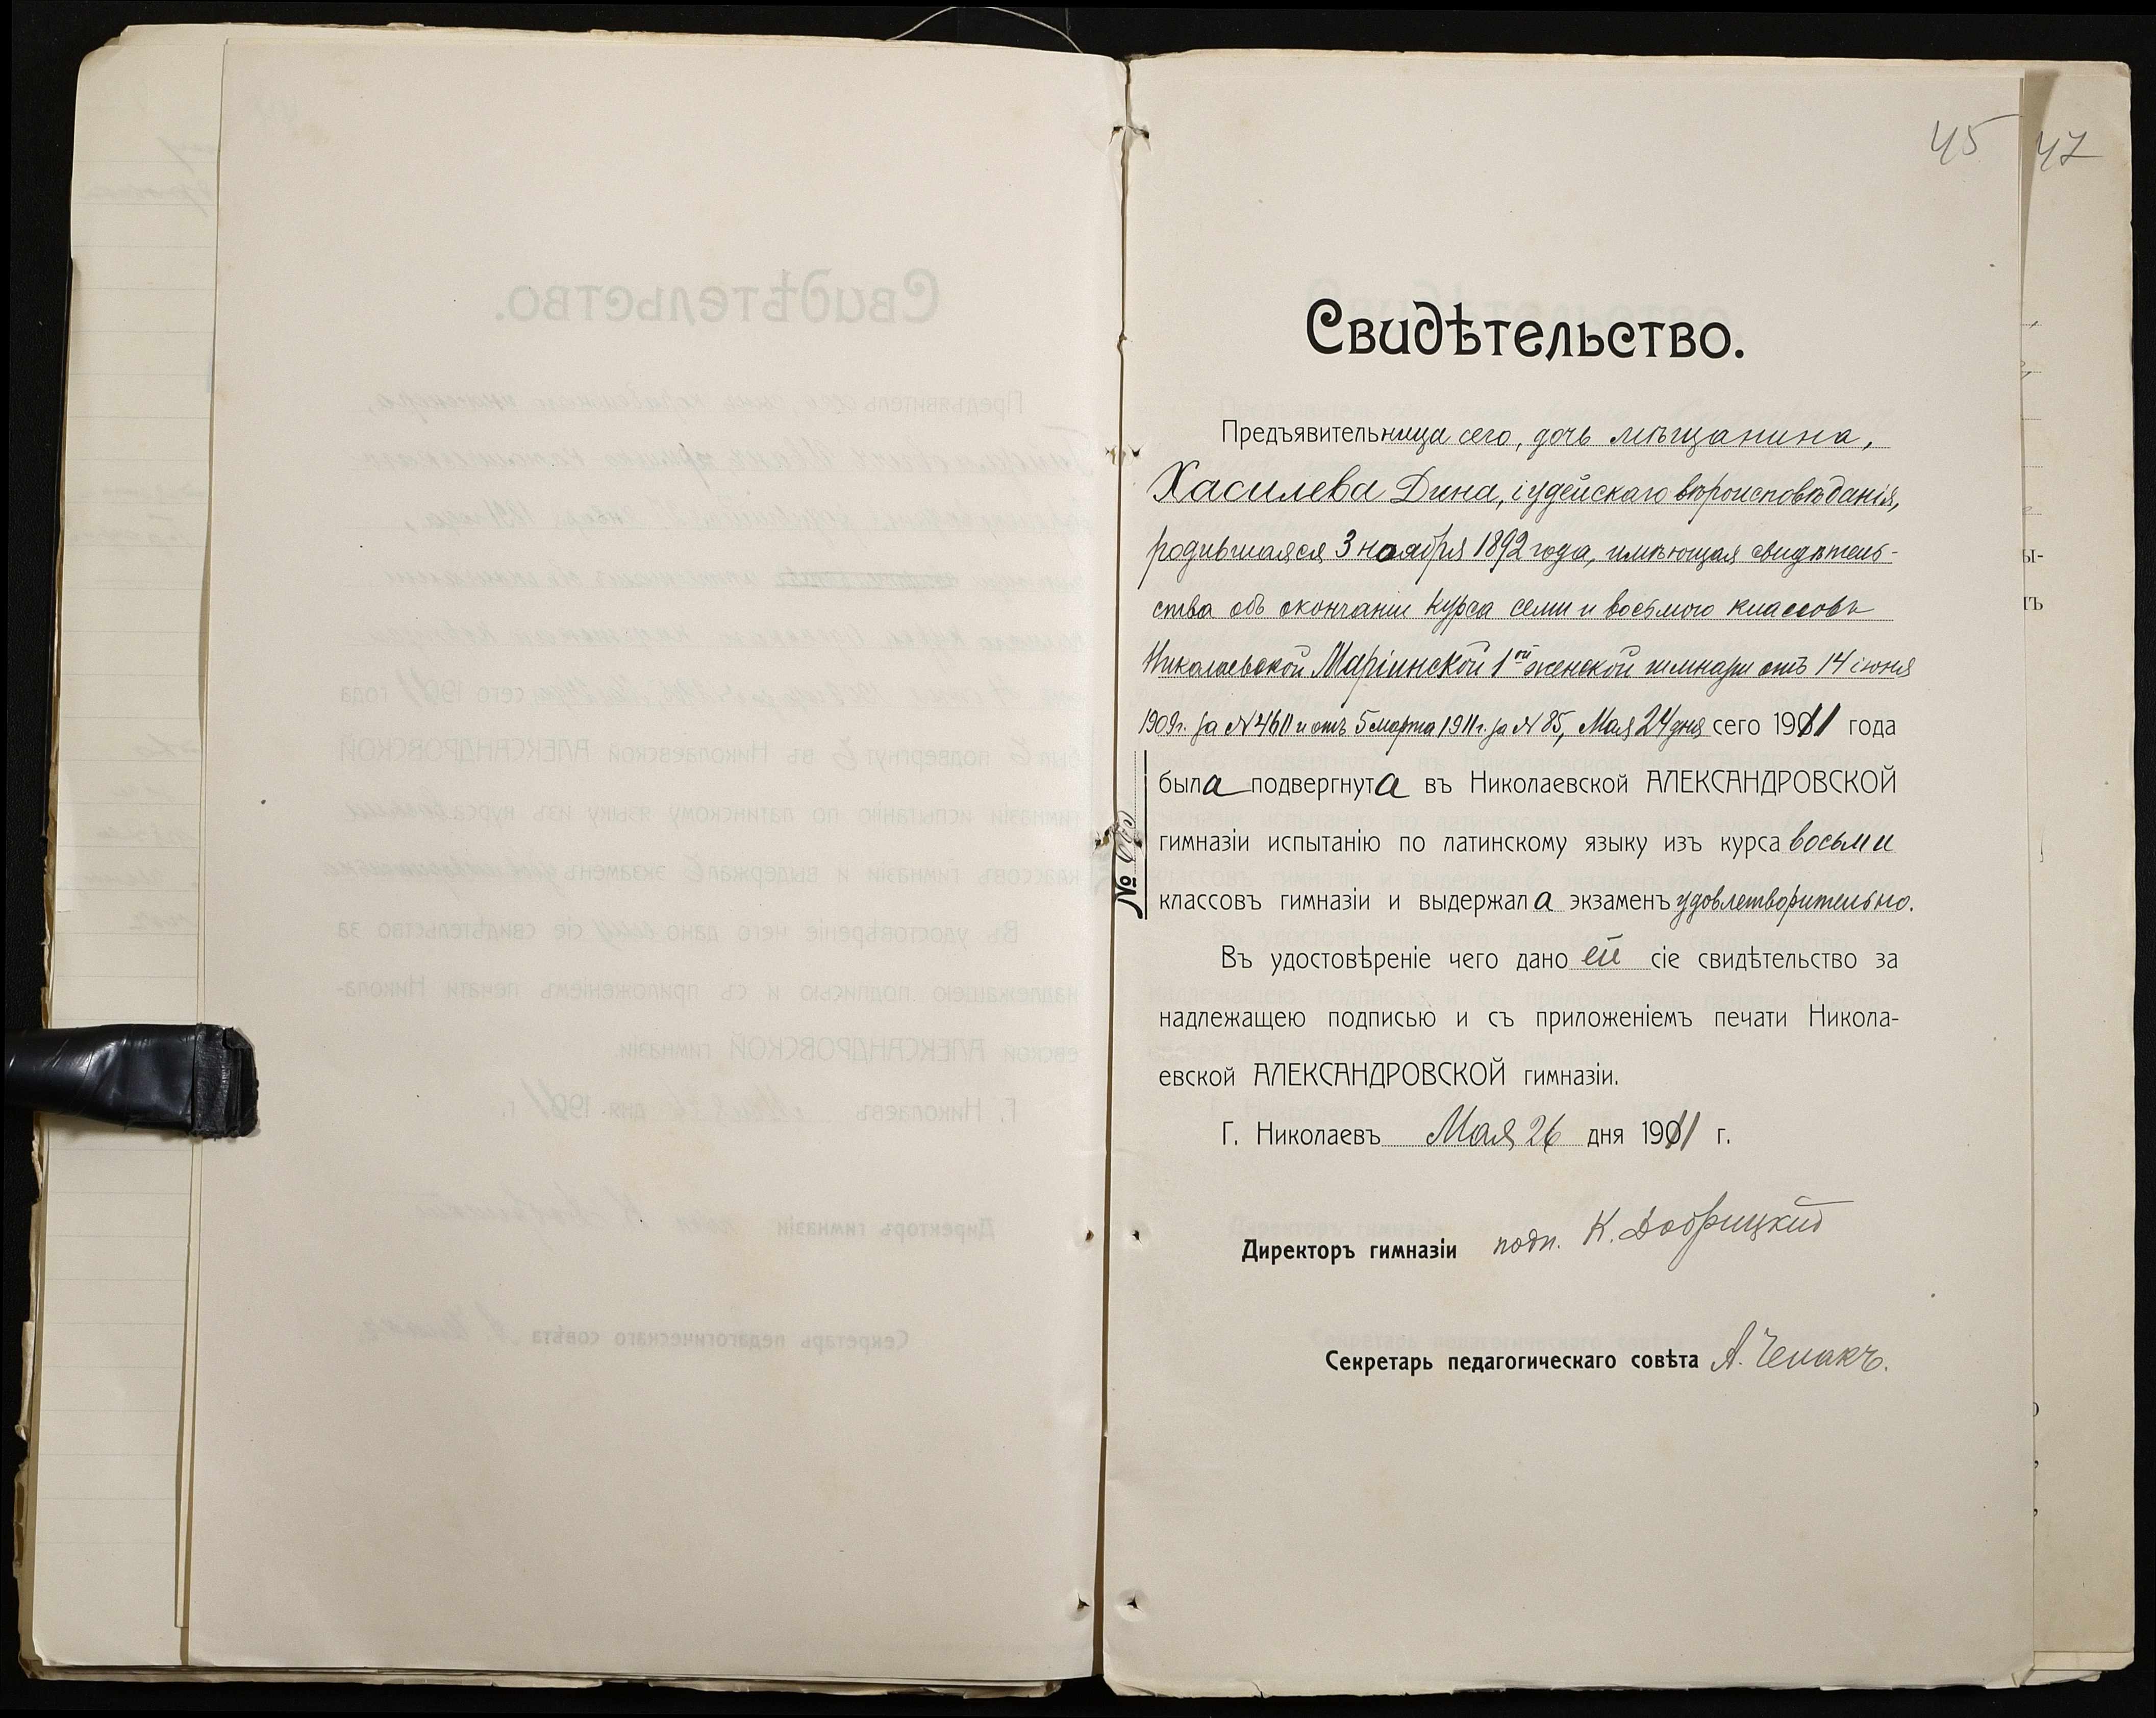 45
47
Свидѣтельство.
Предъявительница сего, дочь мѣщанина,
Хасилева Дина, іудейскаго вѣроисповѣданія,
родившаяся 3 ноября 1892 года, имѣющая свидѣтель-
ства объ окончаніи курса семи и восьмого классовъ
Николаевской Маріинской 1ой женской гимназіи отъ 14 іюня
1909 г. за № 460 и отъ 5 марта 1911 г. за № 85, Мая 24 дня сего 1911 года
была подвергнута въ Николаевской АЛЕКСАНДРОВСКОЙ
гимназіи испытанію по латинскому языку изъ курса восьми
классовъ гимназіи и выдержала экзаменъ удовлетворительно.
Въ удостовѣреніе чего дано ей сіе свидѣтельство за
надлежащею подписью и съ приложеніемъ печати Никола-
евской АЛЕКСАНДРОВСКОЙ гимназіи.
Г. Николаевъ Мая 26 дня 1911 г.
Директоръ гимназіи подп. К. Добрицкій
Секретарь педагогическаго совѣта А. Ченакъ.
№